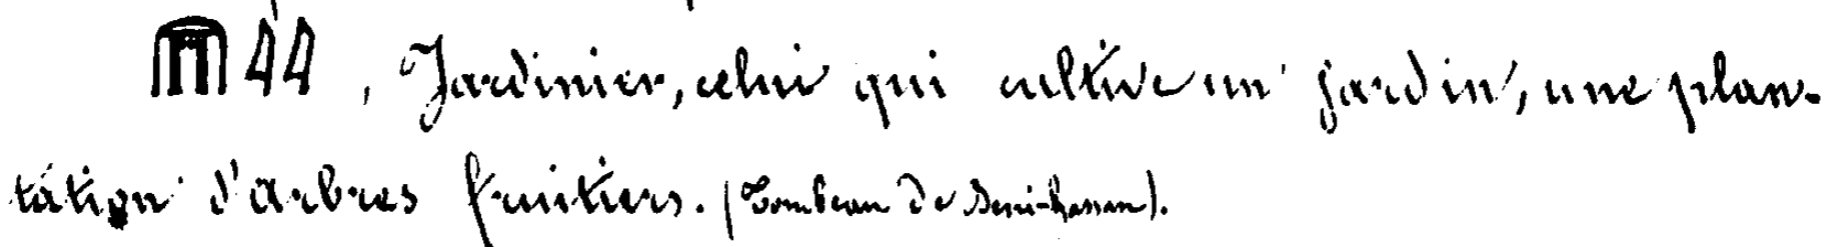 𓇋𓇋, Jardinier, celui qui cultive un jardin, une plan-
tation d'arbres fruitiers. (Tombeau de Beni-hassan).